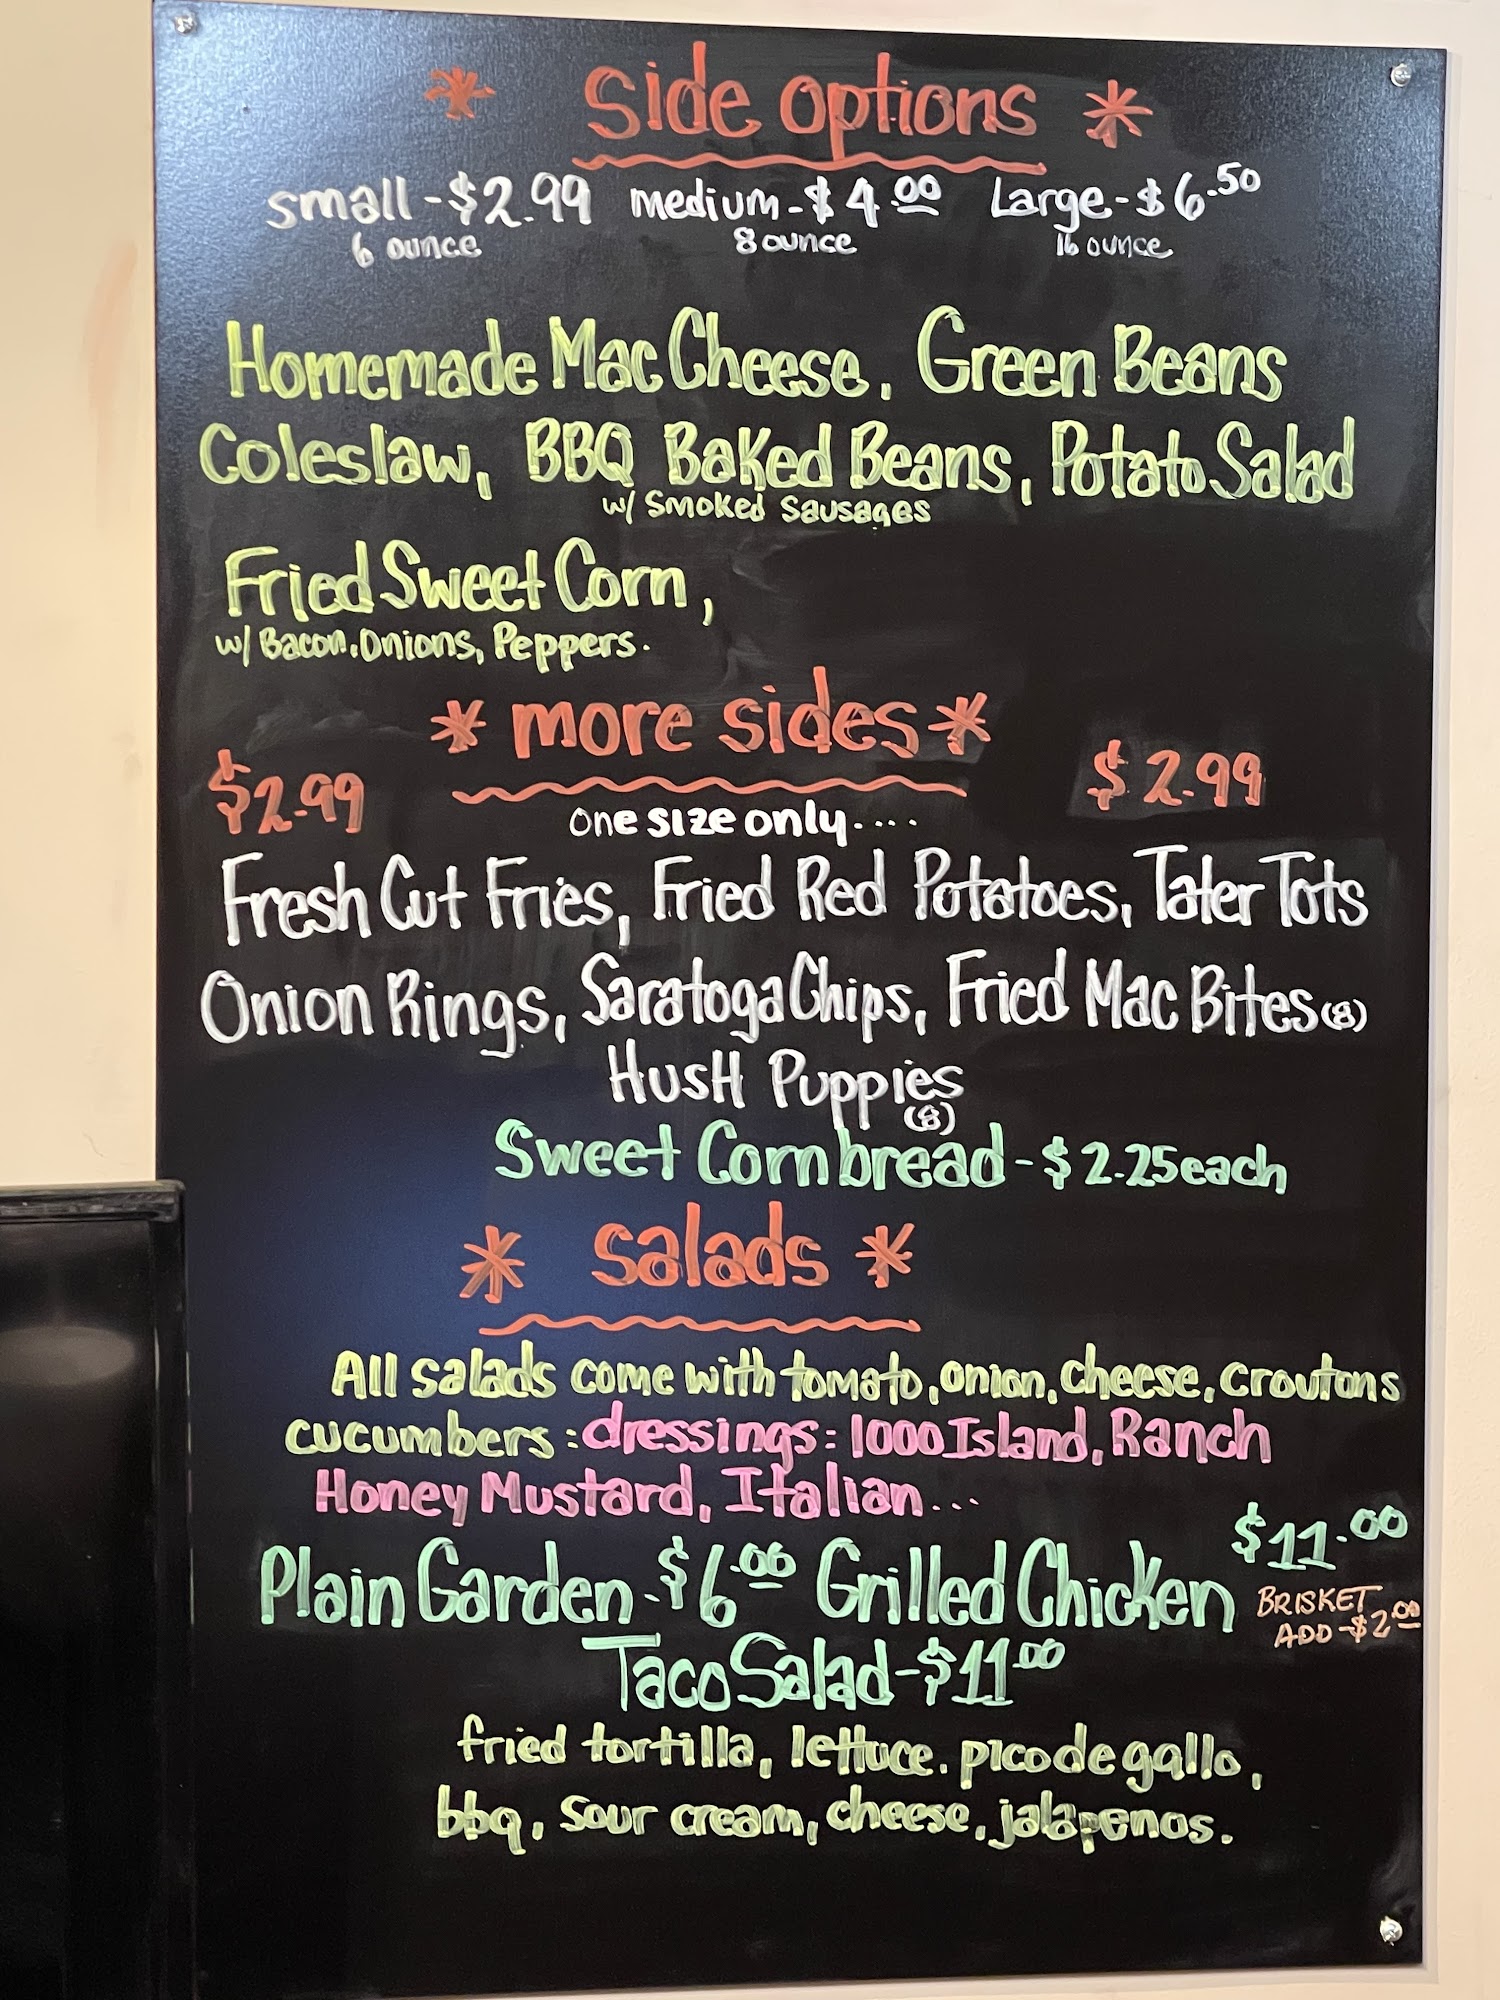 * Side options *
small - $2.99 medium - $4.00 Large - $6.50
6 ounce 8 ounce 16 ounce
Homemade Mac Cheese, Green Beans
Coleslaw, BBQ Baked Beans, Potato Salad
w/ Smoked Sausages
Fried Sweet Corn,
w/ Bacon, Onions, Peppers.
* more sides *
$2.99 $2.99
one size only....
Fresh Cut Fries, Fried Red Potatoes, Tater Tots
Onion Rings, Saratoga Chips, Fried Mac Bites (8)
Hush Puppies
(8)
Sweet Cornbread - $2.25 each
* Salads *
All salads come with tomato, onion, cheese, croutons
cucumbers : dressings : 1000 Island, Ranch
Honey Mustard, Italian...
Plain Garden - $6.00 Grilled Chicken $11.00
BRISKET
ADD - $2.00
Taco Salad - $11.00
fried tortilla, lettuce. pico de gallo,
bbq, sour cream, cheese, jalapenos.